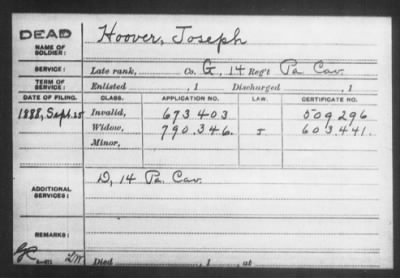 DEAD
NAME OF SOLDIER: Hoover, Joseph
SERVICE: Late rank, Co. G, 14 Reg't Pa. Cav.
TERM OF SERVICE: Enlisted , 1 Discharged , 1
DATE OF FILING. CLASS. APPLICATION NO. LAW. CERTIFICATE NO.
1888, Sept. 25 Invalid, 673403 509296
Widow, 790.346. J 603.441.
Minor,
ADDITIONAL SERVICES: D, 14 Pa. Cav.
REMARKS:
Died , 1 , at